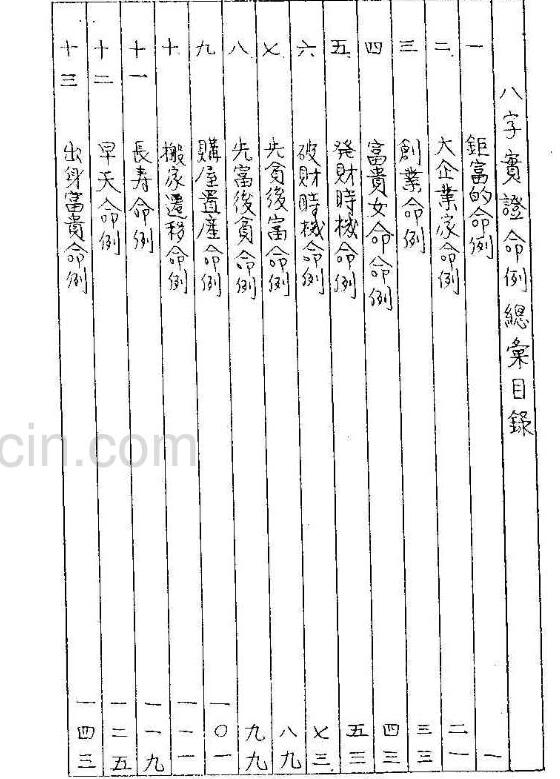 八字實證命例總彙目錄
一 鉅富的命例 一
二 大企業家命例 二一
三 創業命例 三三
四 富貴女命命例 四三
五 発財時機命例 五三
六 破財時機命例 七三
七 先貧後富命例 八九
八 先富後貧命例 九九
九 購屋置産命例 一〇一
十 搬家遷移命例 一一一
十一 長寿命例 一一九
十二 早夭命例 一二五
十三 出身富貴命例 一四三
cin.com